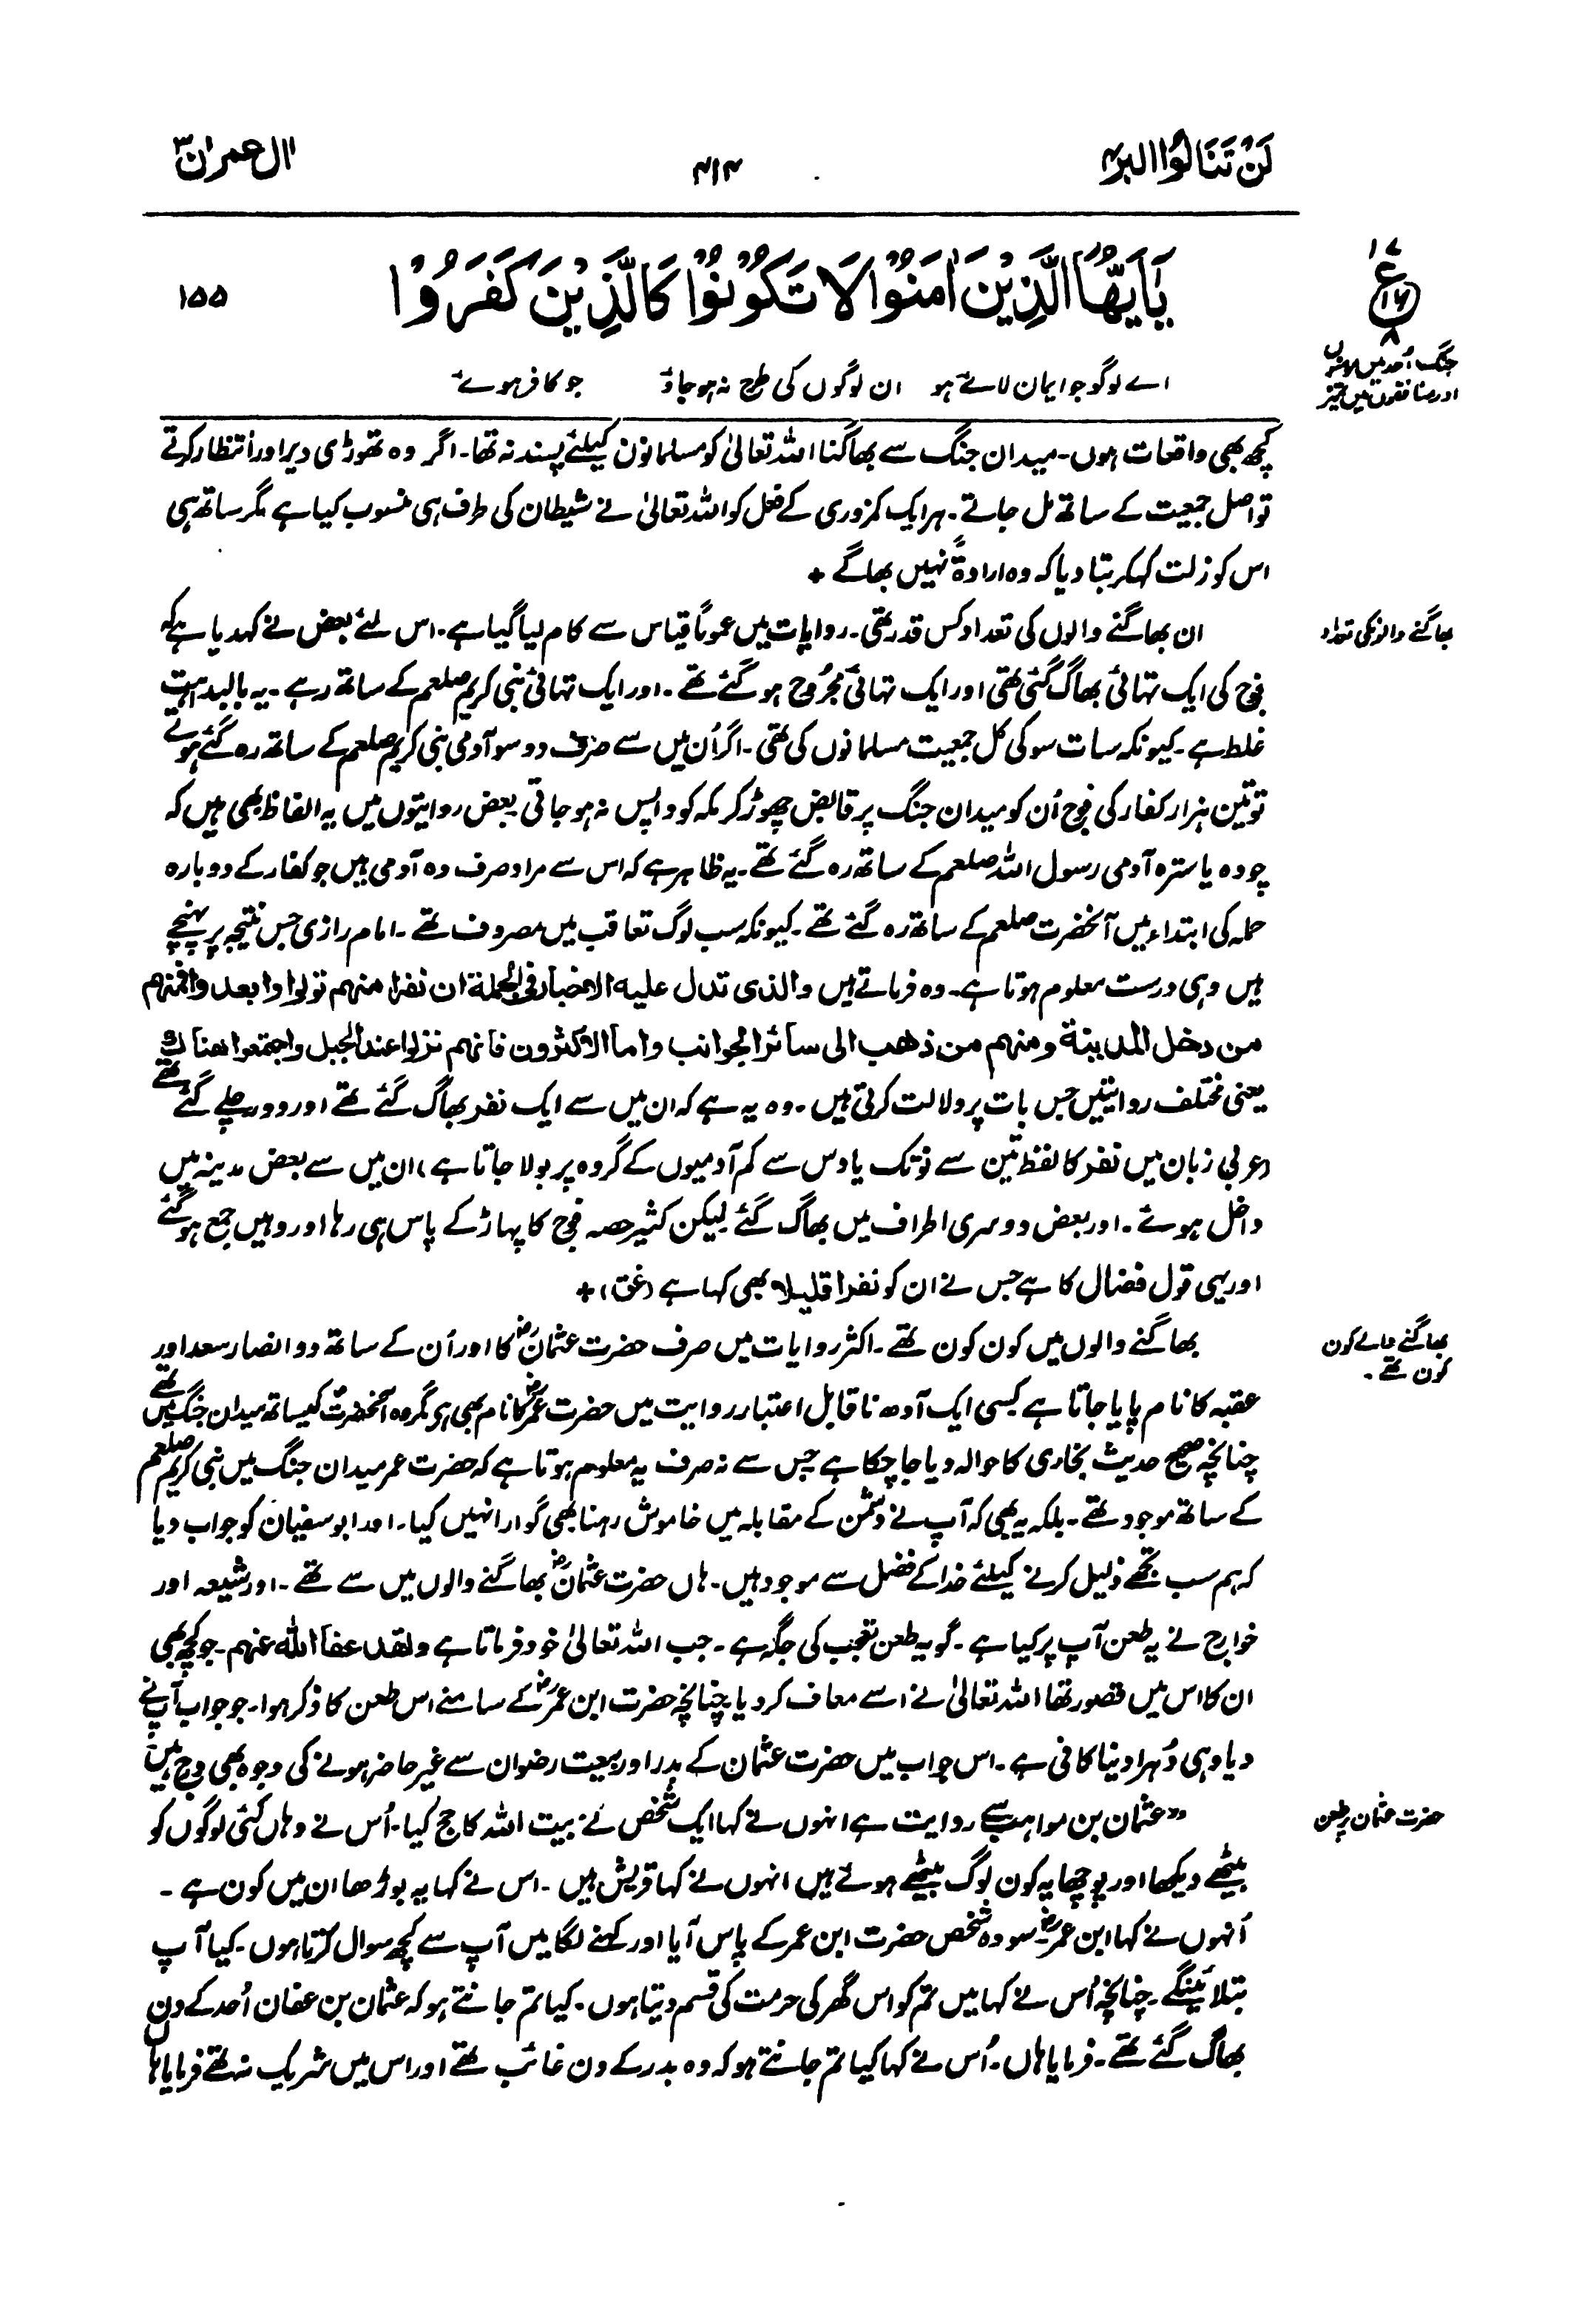 لَنْ تَنَالُوا البر۴
۴۱۴
اٰل عمرٰن ۳
یٰۤاَیُّهَا الَّذِیْنَ اٰمَنُوْا لَا تَكُوْنُوْا كَالَّذِیْنَ كَفَرُوْا
۱۵۵
۱۷
ع
۱۶
۸
جنگ اُحد میں
اور منافقوں میں تمیز
اے لوگو جو ایمان لائے ہو ان لوگوں کی طرح نہ ہو جاؤ جو کافر ہوئے
کچھ بھی واقعات ہوں۔ میدان جنگ سے بھاگنا اللہ تعالیٰ کو مسلمانوں کیلئے پسند نہ تھا۔ اگر وہ تھوڑی دیر اور انتظار کرتے
تو اصل جمعیت کے ساتھ مل جاتے۔ ہر ایک کمزوری کے فعل کو اللہ تعالیٰ نے شیطان کی طرف ہی منسوب کیا ہے مگر ساتھ ہی
اس کو زلت کہکر بتا دیا کہ وہ ارادۃً نہیں بھاگے +
بھاگنے والونکی تعداد
ان بھاگنے والوں کی تعداد کس قدر تھی۔ روایات میں عموماً قیاس سے کام لیا گیا ہے۔ اس لئے بعض نے کہدیا ہے کہ
فوج کی ایک تہائی بھاگ گئی تھی اور ایک تہائی مجرُوح ہو گئے تھے۔ اور ایک تہائی نبی کریم صلعم کے ساتھ رہے۔ یہ بالبداہت
غلط ہے۔ کیونکہ سات سو کی کل جمعیت مسلمانوں کی تھی۔ اگر اُن میں سے صرف دو سو آدمی نبی کریم صلعم کے ساتھ رہ گئے ہوتے
تو تین ہزار کفار کی فوج اُن کو میدان جنگ پر قابض چھوڑ کر مکہ کو واپس نہ ہو جاتی۔ بعض روایتوں میں یہ الفاظ بھی ہیں کہ
چودہ یا سترہ آدمی رسول اللہ صلعم کے ساتھ رہ گئے تھے۔ یہ ظاہر ہے کہ اس سے مراد صرف وہ آدمی ہیں جو کفار کے دوبارہ
حملہ کی ابتداء میں آنحضرت صلعم کے ساتھ رہ گئے تھے۔ کیونکہ سب لوگ تعاقب میں مصروف تھے۔ امام رازی جس نتیجہ پر پہنچے
ہیں وہی درست معلوم ہوتا ہے۔ وہ فرماتے ہیں والذی تدل علیه الاخبار فی الجملة ان نفرا منهم تولوا وابعدوا فمنهم
من دخل المدینة ومنهم من ذهب الی سائر الجوانب واما الاکثرون فانهم نزلوا عند الجبل واجتمعوا هناك
یعنی مختلف روایتیں جس بات پر دلالت کرتی ہیں۔ وہ یہ ہے کہ ان میں سے ایک نفر بھاگ گئے تھے اور دور چلے گئے تھے
(عربی زبان میں نفر کا لفظ تین سے نو تک یا دس سے کم آدمیوں کے گروہ پر بولا جاتا ہے) ان میں سے بعض مدینہ میں
داخل ہوئے۔ اور بعض دوسری اطراف میں بھاگ گئے لیکن کثیر حصہ فوج کا پہاڑ کے پاس ہی رہا اور وہیں جمع ہو گئے
اور یہی قول فضال کا ہے جس نے ان کو نفرا قلیلا بھی کہا ہے (غق) +
بھاگنے والے کون
کون تھے۔
بھاگنے والوں میں کون کون تھے۔ اکثر روایات میں صرف حضرت عثمانؓ کا اور اُن کے ساتھ دو انصار سعد اور
عقبہ کا نام پایا جاتا ہے کسی ایک آدھ ناقابل اعتبار روایت میں حضرت عمرؓ کا نام بھی ہی مگر وہ آنحضرتؐ کیساتھ میدان جنگ میں تھے
چنانچہ صحیح حدیث بخاری کا حوالہ دیا جا چکا ہے جس سے نہ صرف یہ معلوم ہوتا ہے کہ حضرت عمر میدان جنگ میں نبی کریم صلعم
کے ساتھ موجود تھے۔ بلکہ یہ بھی کہ آپ نے دشمن کے مقابلہ میں خاموش رہنا بھی گوارا نہیں کیا۔ اور ابوسفیان کو جواب دیا
کہ ہم سب تجھے ذلیل کرنے کیلئے خدا کے فضل سے موجود ہیں۔ ہاں حضرت عثمانؓ بھاگنے والوں میں سے تھے۔ اور شیعہ اور
خوارج نے یہ طعن آپ پر کیا ہے۔ گو یہ طعن تعجب کی جگہ ہے۔ جب اللہ تعالیٰ خود فرماتا ہے ولقد عفا الله عنهم۔ جو کچھ بھی
ان کا اس میں قصور تھا اللہ تعالیٰ نے اسے معاف کر دیا۔ چنانچہ حضرت ابن عمرؓ کے سامنے اس طعن کا ذکر ہوا۔ جو جواب آپنے
دیا وہی دُہرا دینا کافی ہے۔ اس جواب میں حضرت عثمان کے بدر اور بیعت رضوان سے غیر حاضر ہونے کی وجوہ بھی درج ہیں
حضرت عثمان پر طعن
"عثمان بن مواہب سے روایت ہے انہوں نے کہا ایک شخص نے بیت اللہ کا حج کیا۔ اُس نے وہاں کئی لوگوں کو
بیٹھے دیکھا اور پوچھا یہ کون لوگ بیٹھے ہوئے ہیں انہوں نے کہا قریش ہیں۔ اس نے کہا یہ بوڑھا ان میں کون ہے۔
اُنہوں نے کہا ابن عمرؓ۔ سو وہ شخص حضرت ابن عمر کے پاس آیا اور کہنے لگا میں آپ سے کچھ سوال کرتا ہوں۔ کیا آپ
بتلائینگے۔ چنانچہ اُس نے کہا میں تم کو اس گھر کی حرمت کی قسم دیتا ہوں۔ کیا تم جانتے ہو کہ عثمان بن عفان اُحد کے دن
بھاگ گئے تھے۔ فرمایا ہاں۔ اُس نے کہا کیا تم جانتے ہو کہ وہ بدر کے دن غائب تھے اور اس میں شریک نہ تھے فرمایا ہاں